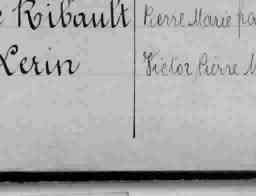 Ribault Pierre Marie
Lerin Victor Pierre